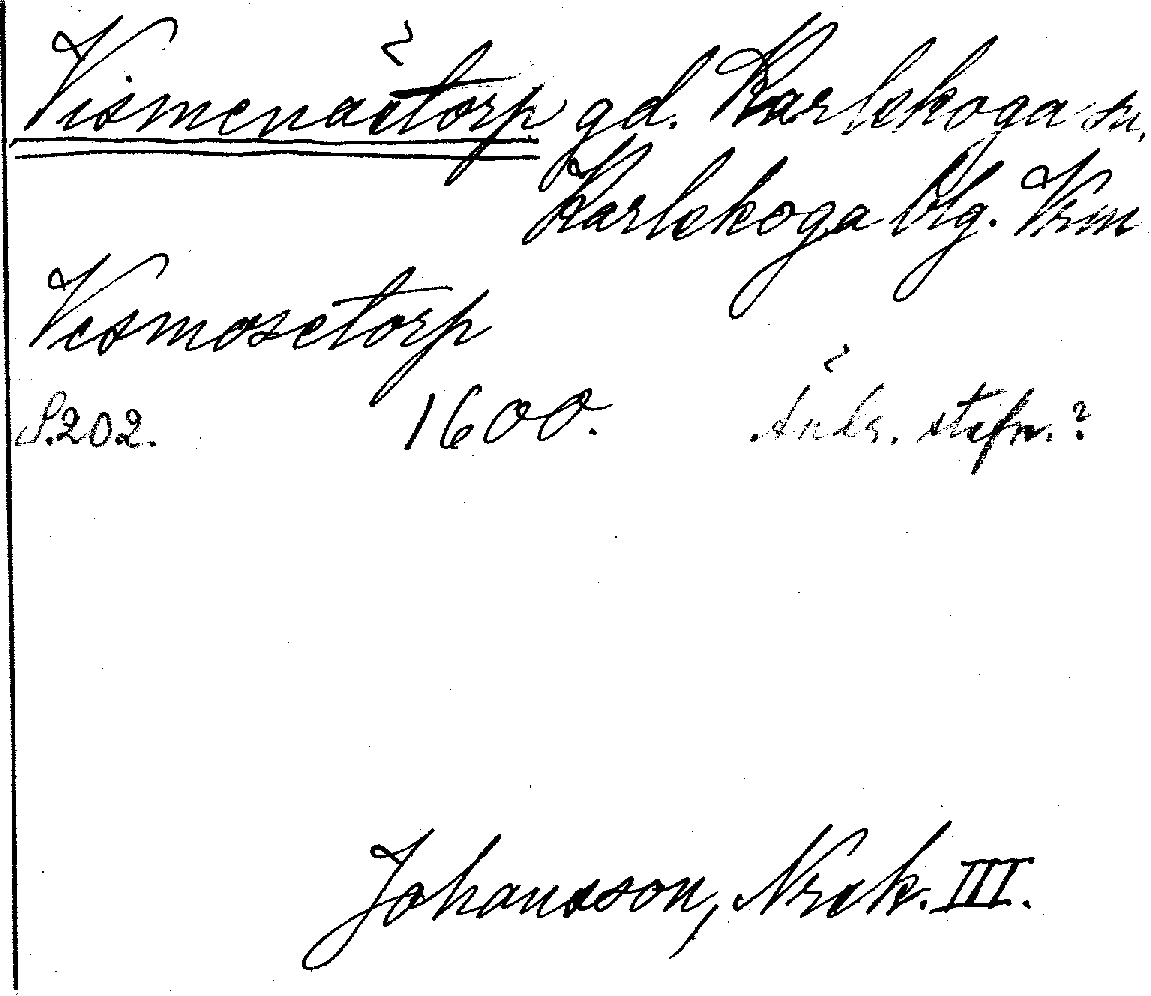 Vismenästorp gd. Karlskoga sn.
Karlskoga blg. Vrm
Vesmosetorp
S. 202. 1600. stafn.?
Johansson, Nrck. III.